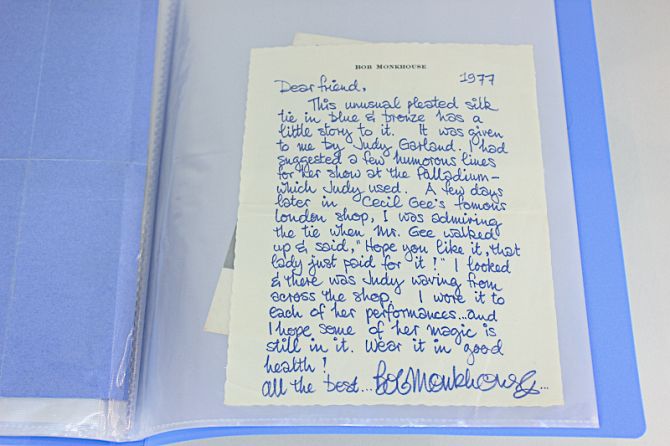 BOB MONKHOUSE
1977
Dear friend,
This unusual pleated silk
tie in blue & bronze has a
little story to it. It was given
to me by Judy Garland. I had
suggested a few humorous lines
for her show at the Palladium–
which Judy used. A few days
later in Cecil Gee's famous
London shop, I was admiring
the tie when Mr. Gee walked
up & said, "Hope you like it, that
lady just paid for it!" I looked
& there was Judy waving from
across the shop. I wore it to
each of her performances...and
I hope some of her magic is
still in it. Wear it in good
health!
All the best...Bob Monkhouse...